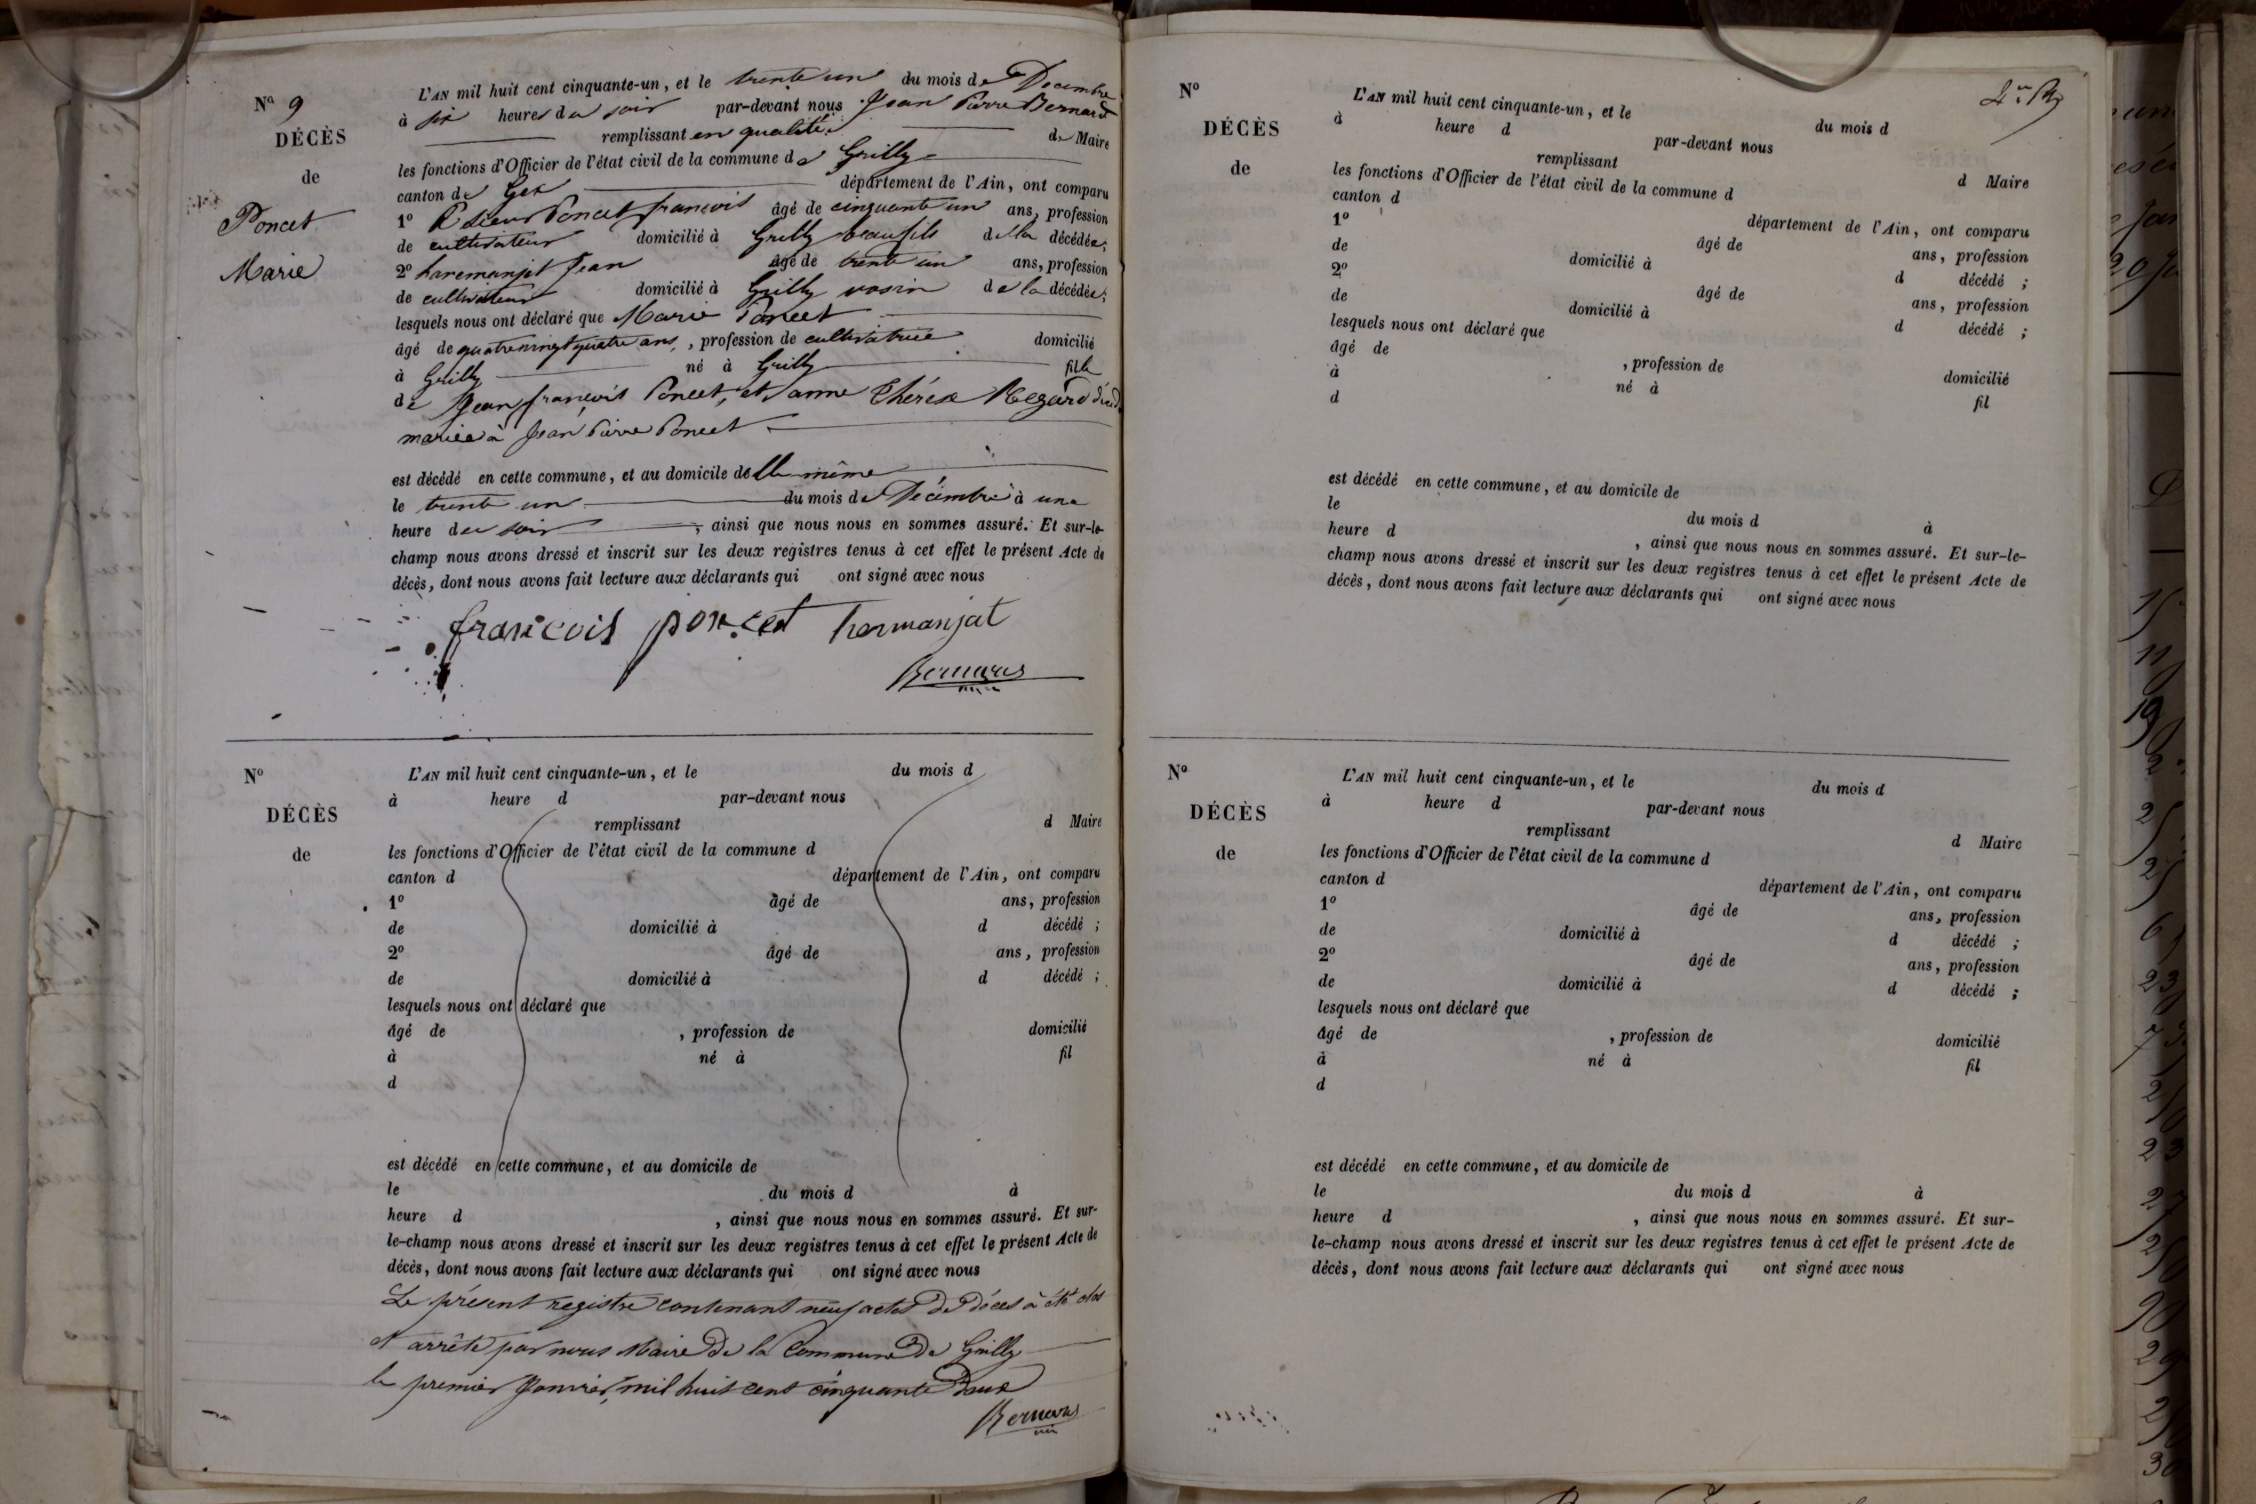 N° 9
DÉCÈS
de
Poncet
Marie
L'AN mil huit cent cinquante-un, et le trente un du mois de Decembre
à six heures du soir par-devant nous Jean Pierre Bernard
remplissant en qualité de Maire
les fonctions d'Officier de l'état civil de la commune de Grilly
canton de Gex département de l'Ain, ont comparu
1° Poncet françois âgé de cinquante un ans, profession
de cultivateur domicilié à Grilly beau fils de la décédée;
2° haremanjat Jean âgé de trente un ans, profession
de cultivateur domicilié à Grilly voisin de la décédée;
lesquels nous ont déclaré que Marie Poncet
âgé de quatrevingt quatre ans, profession de cultivatrice domicilié
à Grilly né à Grilly fille
de Jean françois Poncet, et anne Thérèse Regard
mariée à Jean Pierre Poncet
est décédé en cette commune, et au domicile d'elle même
le trente un du mois de Décembre à une
heure du soir, ainsi que nous nous en sommes assuré. Et sur-le-
champ nous avons dressé et inscrit sur les deux registres tenus à cet effet le présent Acte de
décès, dont nous avons fait lecture aux déclarants qui ont signé avec nous
francois poncet hermanjat
Bernard
N°
DÉCÈS
de
L'AN mil huit cent cinquante-un, et le du mois d
à heure d par-devant nous
remplissant d Maire
les fonctions d'Officier de l'état civil de la commune d
canton d département de l'Ain, ont comparu
1° âgé de ans, profession
de domicilié à d décédé ;
2° âgé de ans, profession
de domicilié à d décédé ;
lesquels nous ont déclaré que
âgé de , profession de domicilié
à né à fil
d
est décédé en cette commune, et au domicile de
le du mois d à
heure d , ainsi que nous nous en sommes assuré. Et sur-
le-champ nous avons dressé et inscrit sur les deux registres tenus à cet effet le présent Acte de
décès, dont nous avons fait lecture aux déclarants qui ont signé avec nous
Le présent registre contenant neuf actes de Décès à été clos
et arrêté par nous Maire de la Commune de Grilly
le premier Janvier, mil huit cent cinquante Deux
Bernard
N°
DÉCÈS
de
L'AN mil huit cent cinquante-un, et le du mois d
à heure d par-devant nous
remplissant d Maire
les fonctions d'Officier de l'état civil de la commune d
canton d département de l'Ain, ont comparu
1° âgé de ans, profession
de domicilié à d décédé ;
2° âgé de ans, profession
de domicilié à d décédé ;
lesquels nous ont déclaré que
âgé de , profession de domicilié
à né à fil
d
est décédé en cette commune, et au domicile de
le du mois d à
heure d , ainsi que nous nous en sommes assuré. Et sur-le-
champ nous avons dressé et inscrit sur les deux registres tenus à cet effet le présent Acte de
décès, dont nous avons fait lecture aux déclarants qui ont signé avec nous
N°
DÉCÈS
de
L'AN mil huit cent cinquante-un, et le du mois d
à heure d par-devant nous
remplissant d Maire
les fonctions d'Officier de l'état civil de la commune d
canton d département de l'Ain, ont comparu
1° âgé de ans, profession
de domicilié à d décédé ;
2° âgé de ans, profession
de domicilié à d décédé ;
lesquels nous ont déclaré que
âgé de , profession de domicilié
à né à fil
d
est décédé en cette commune, et au domicile de
le du mois d à
heure d , ainsi que nous nous en sommes assuré. Et sur-
le-champ nous avons dressé et inscrit sur les deux registres tenus à cet effet le présent Acte de
décès, dont nous avons fait lecture aux déclarants qui ont signé avec nous